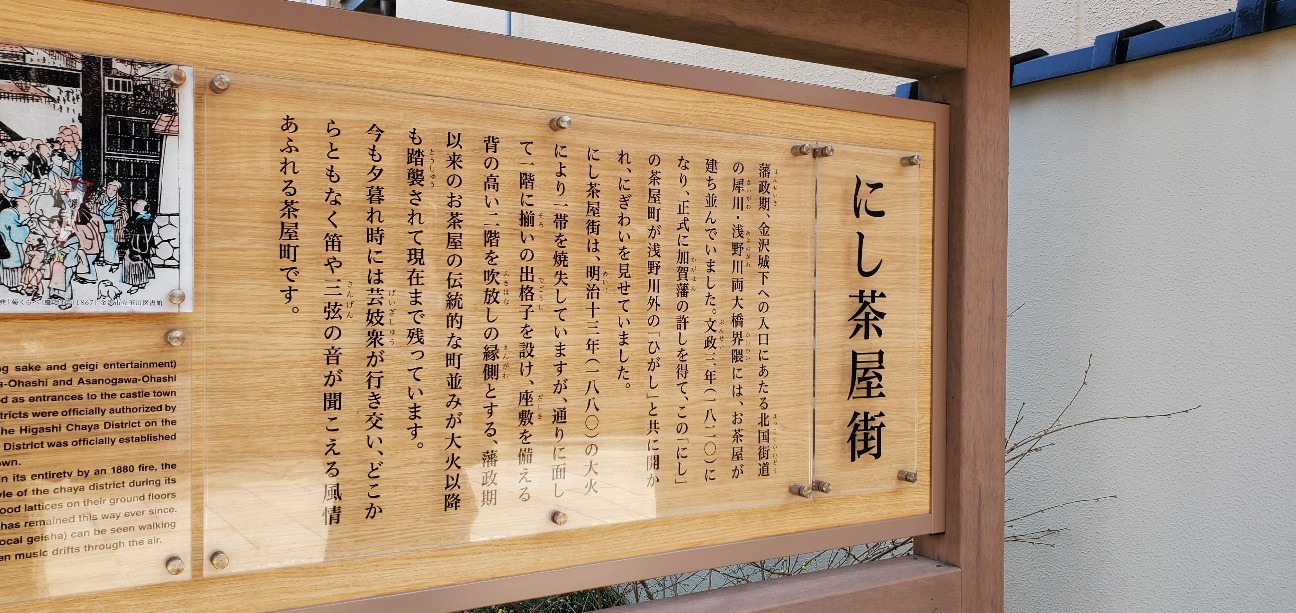 にし茶屋街
藩政期、金沢城下への入口にあたる北国街道
の犀川・浅野川両大橋界隈には、お茶屋が
建ち並んでいました。文政三年（一八二〇）に
なり、正式に加賀藩の許しを得て、この「にし」
の茶屋町が浅野川外の「ひがし」と共に開か
れ、にぎわいを見せていました。
にし茶屋街は、明治十三年（一八八〇）の大火
により一帯を焼失していますが、通りに面し
て一階に揃いの出格子を設け、座敷を備える
背の高い二階を吹放しの縁側とする、藩政期
以来のお茶屋の伝統的な町並みが大火以降
も踏襲されて現在まで残っています。
今も夕暮れ時には芸妓衆が行き交い、どこか
らともなく笛や三弦の音が聞こえる風情
あふれる茶屋町です。
ng sake and geigi entertainment)
a-Ohashi and Asanogawa-Ohashi
d as entrances to the castle town
tricts were officially authorized by
he Higashi Chaya District on the
District was officially established
own.
in its entirety by an 1880 fire, the
yle of the chaya district during its
ood lattices on their ground floors
has remained this way ever since.
ocal geisha) can be seen walking
en music drifts through the air.